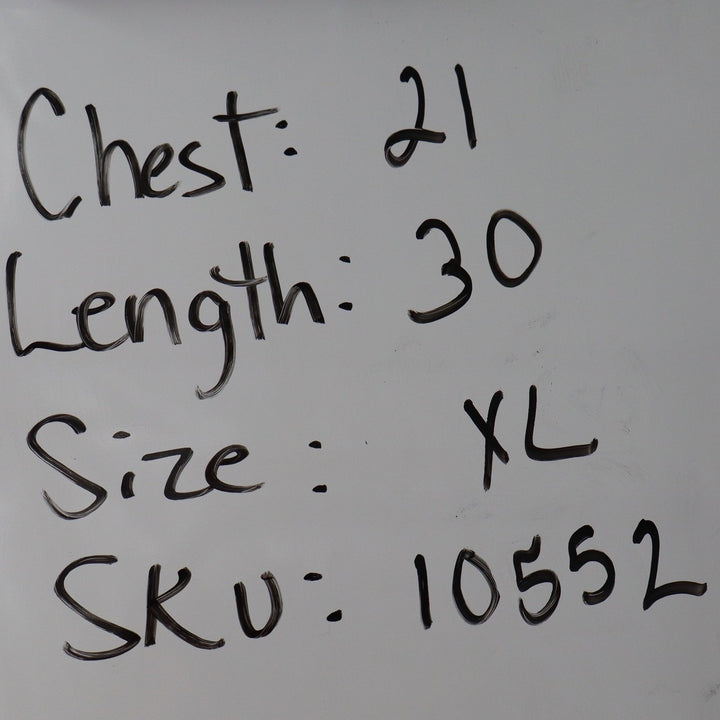 Chest: 21
Length: 30
Size: XL
SKU: 10552